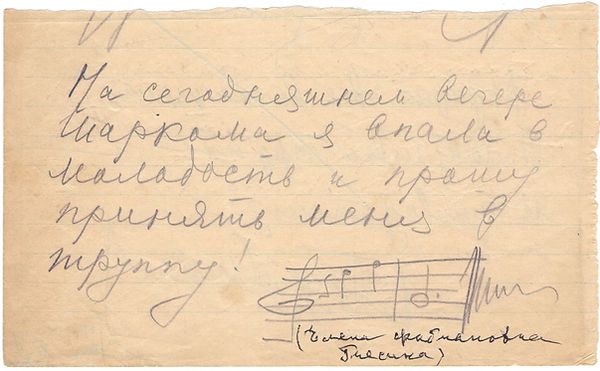 На сегодняшнем вечере
Шаркома я впала в
молодость и прошу
принять меня в
труппу!
(Елена Фабиановна
Гнесина)